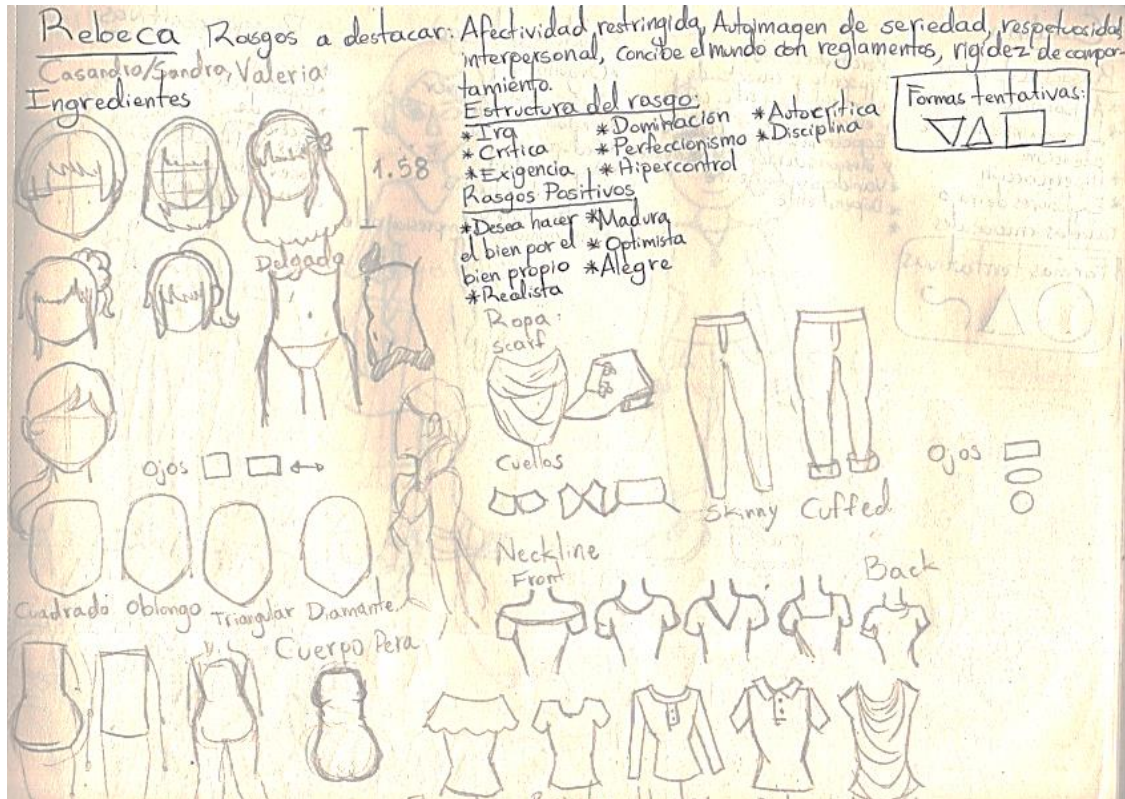 Rebeca Rasgos a destacar: Afectividad restringida, Autoimagen de seriedad, respetuosidad
interpersonal, concibe el mundo con reglamentos, rigidez de compor-
tamiento.
Casandra/Sandra, Valeria
Ingredientes
1.58
Delgado
Estructura del rasgo:
*Ira
*Crítica
*Exigencia
*Dominación
*Perfeccionismo
*Hipercontrol
*Autocrítica
*Disciplina
Formas tentativas:
Rasgos Positivos
*Desea hacer
el bien por el
bien propio
*Realista
*Madura
*Optimista
*Alegre
Ropa:
Scarf
Cuellos
Skinny Cuffed
Ojos
Ojos
Cuadrado Oblongo Triangular Diamante
Cuerpo Pera
Neckline
Front
Back